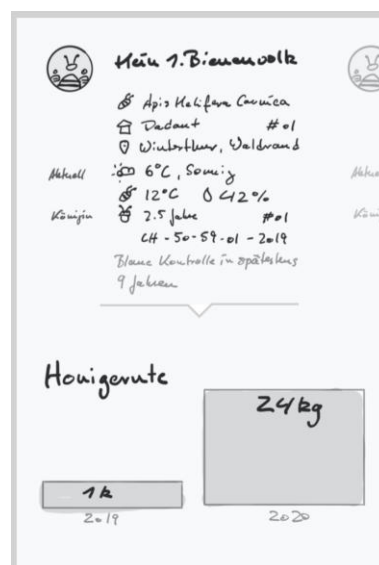 Mein 1. Bienenvolk
Apis Melifera Carnica
Dadant #01
Winterthur, Waldrand
Aktuell 6°C, Sonnig
12°C 42%
Königin 2.5 Jahre #01
CH-50-59-01-2019
Blaue Kontrolle in spätestens
9 Jahren
Honigernte
24kg
1k
2019
2020